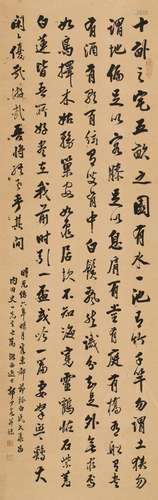 十畝之宅五畝之園有水一池有竹千竿勿謂土狹勿
謂地偏足以容膝足以息肩有堂有庭有橋有船有書
有酒有歌有絃有叟在中白鬚飄然識分知足外無求焉
如鳥擇木姑務巢安如蛙居坎不知海寬靈鶴怪石紫菱
白蓮皆吾所好盡在我前時引一盃或吟一篇妻孥熙熙雞犬
閑閑優哉游哉吾將終老乎其間
時光緒六年月寓京都節臨白氏文集為
先生之屬